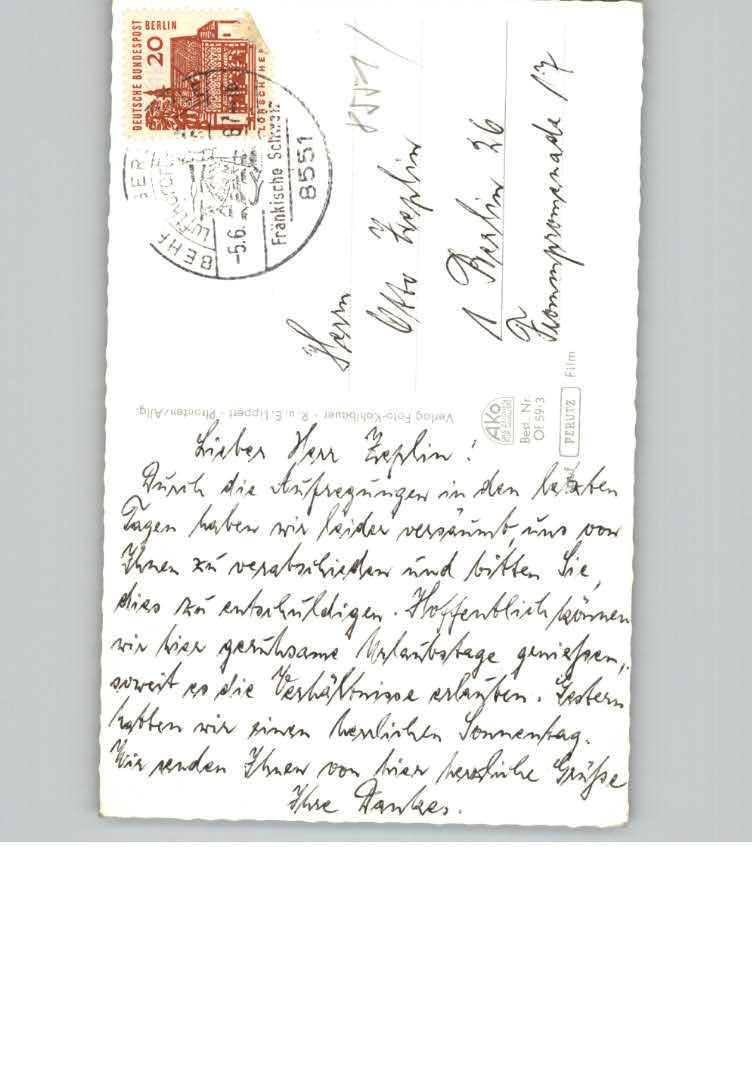 DEUTSCHE BUNDESPOST BERLIN
20
LORSCH/HES
-5.6.
Luftkurort
Fränkische Schweiz
8551
8551
Herrn
Otto Zeplin
1 Berlin 26
Trommpromenade 17
Verlag Foto-Kohlbauer - R. u. E. Lippert - Pfronten/Allg.
AKO
Best. Nr.
Of 59-3
PERUTZ
Film
Lieber Herr Zeplin!
Durch die Aufregungen in den letzten
Tagen haben wir leider versäumt, uns von
Ihnen zu verabschieden und bitten Sie,
dies zu entschuldigen. Hoffentlich können
wir hier geruhsame Urlaubstage geniessen,
soweit es die Verhältnisse erlauben. Gestern
hatten wir einen herrlichen Sonnentag.
Wir senden Ihnen von hier herzliche Grüße
Ihre